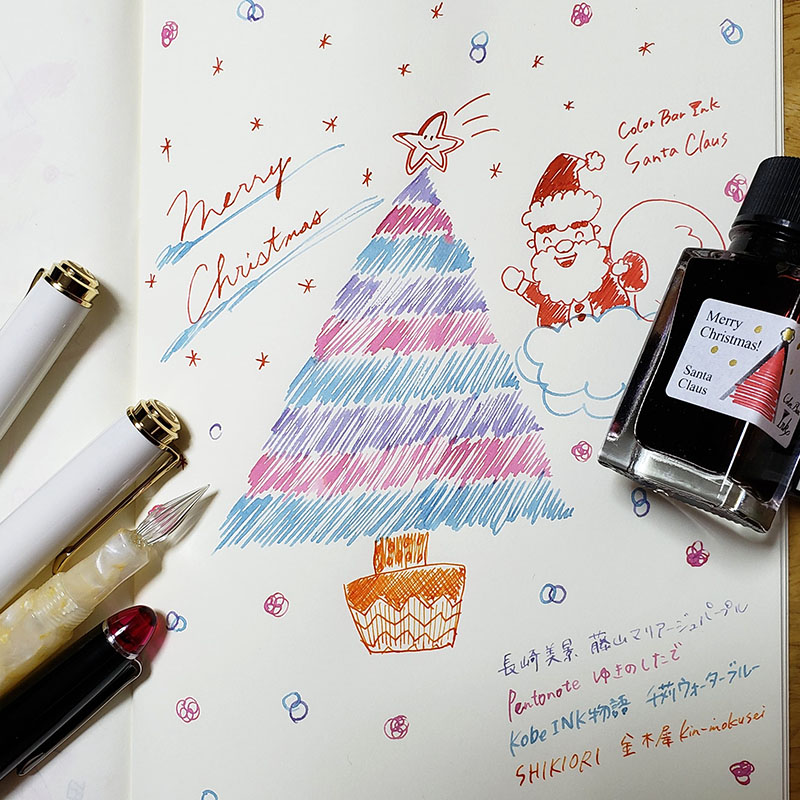 Merry
Christmas
Color Bar Ink
Santa Claus
Merry
Christmas!
Santa
Claus
長崎美景 藤山マリアージュパープル
Pentonote ゆきのしたで
Kobe INK物語 千苅ウォーターブルー
SHIKIORI 金木犀 kin-mokusei